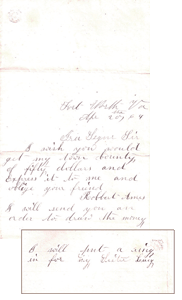 Fort Worth Va
Ira Segur Sir
I wish you would
get my town bounty
of fifty dollars and
express it to me and
oblige your friend
Robbert Ames
I will send you an
order to draw the money
I will put a ring
in for my Sister